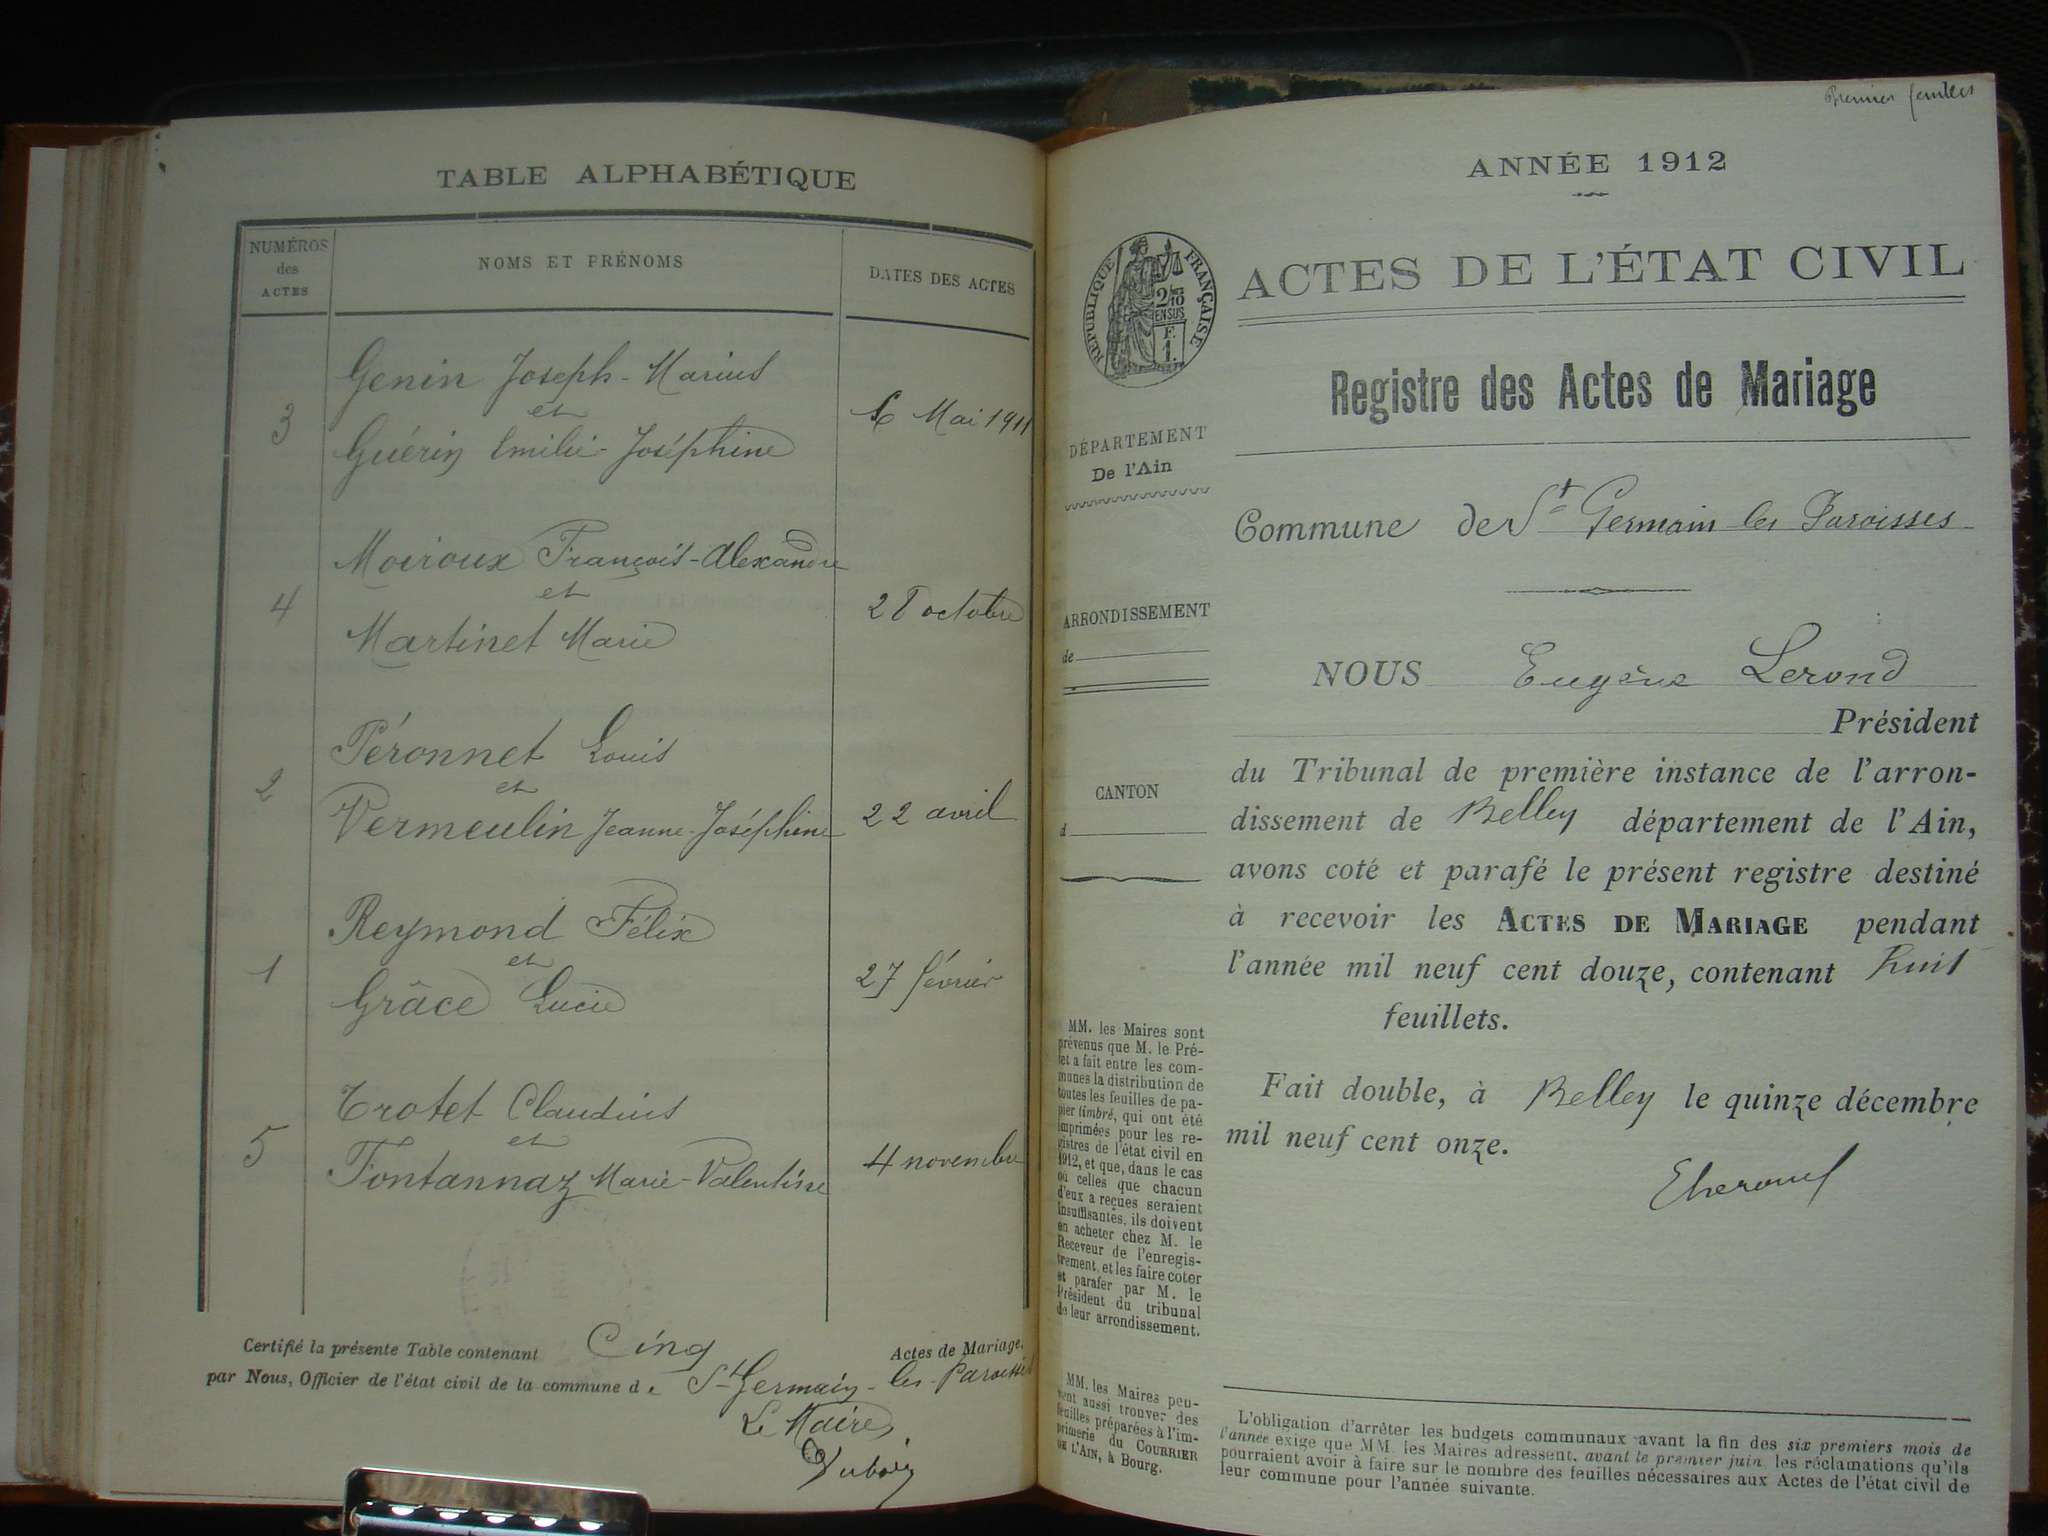 TABLE ALPHABÉTIQUE
NUMÉROS des ACTES
NOMS ET PRÉNOMS
DATES DES ACTES
Genin Joseph-Marius
et
3
6 Mai 1911
Guérin Emilie-Joséphine
Moiroux François-Alexandre
et
4
28 octobre
Martinet Marie
Péronnet Louis
et
2
22 avril
Vermeulin Jeanne-Joséphine
Reymond Félix
et
1
27 février
Grâce Lucie
Trotet Claudius
et
5
4 novembre
Fontannaz Marie-Valentine
Certifié la présente Table contenant Cinq Actes de Mariage,
par Nous, Officier de l'état civil de la commune de St Germain-les-Paroisses
Le Maire,
Dubois
Premier feuillet
ANNÉE 1912
ACTES DE L'ÉTAT CIVIL
RÉPUBLIQUE FRANÇAISE
2/10
EN SUS
F.
1.
Registre des Actes de Mariage
DÉPARTEMENT
De l'Ain
Commune de St Germain les Paroisses
ARRONDISSEMENT
de
NOUS Eugène Lerond
Président
du Tribunal de première instance de l'arron-
dissement de Belley département de l'Ain,
avons coté et parafé le présent registre destiné
à recevoir les ACTES DE MARIAGE pendant
l'année mil neuf cent douze, contenant huit
feuillets.
Fait double, à Belley le quinze décembre
mil neuf cent onze.
CANTON
d
MM. les Maires sont
prévenus que M. le Pré-
fet a fait entre les com-
munes la distribution de
toutes les feuilles de pa-
pier timbré, qui ont été
imprimées pour les re-
gistres de l'état civil en
1912, et que, dans le cas
où celles que chacun
d'eux a reçues seraient
insuffisantes, ils doivent
en acheter chez M. le
Receveur de l'enregis-
trement, et les faire coter
et parafer par M. le
Président du tribunal
de leur arrondissement.
MM. les Maires peu-
vent aussi trouver des
feuilles préparées à l'im-
primerie du COURRIER
DE L'AIN, à Bourg.
L'obligation d'arrêter les budgets communaux avant la fin des six premiers mois de
l'année exige que MM. les Maires adressent, avant le premier juin, les réclamations qu'ils
pourraient avoir à faire sur le nombre des feuilles nécessaires aux Actes de l'état civil de
leur commune pour l'année suivante.